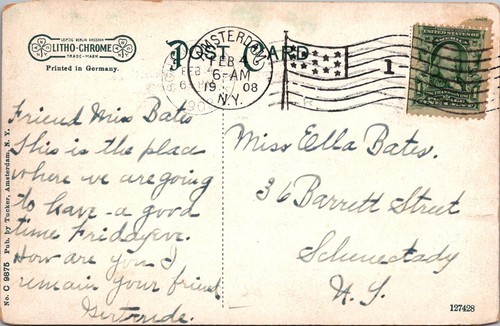 LEIPZIG BERLIN DRESDEN
LITHO-CHROME
TRADE-MARK
Printed in Germany.
POST CARD
AMSTERDAM
FEB
6-AM
19 08
N.Y.
1
Friend Miss Bates
This is the place
where we are going
to have a good
time Friday eve.
How are you I
remain your friend
Gertrude.
Miss Ella Bates.
36 Barrett Street
Schenectady
N.Y.
No. C 9875 Pub. by Tucker, Amsterdam, N. Y.
127428